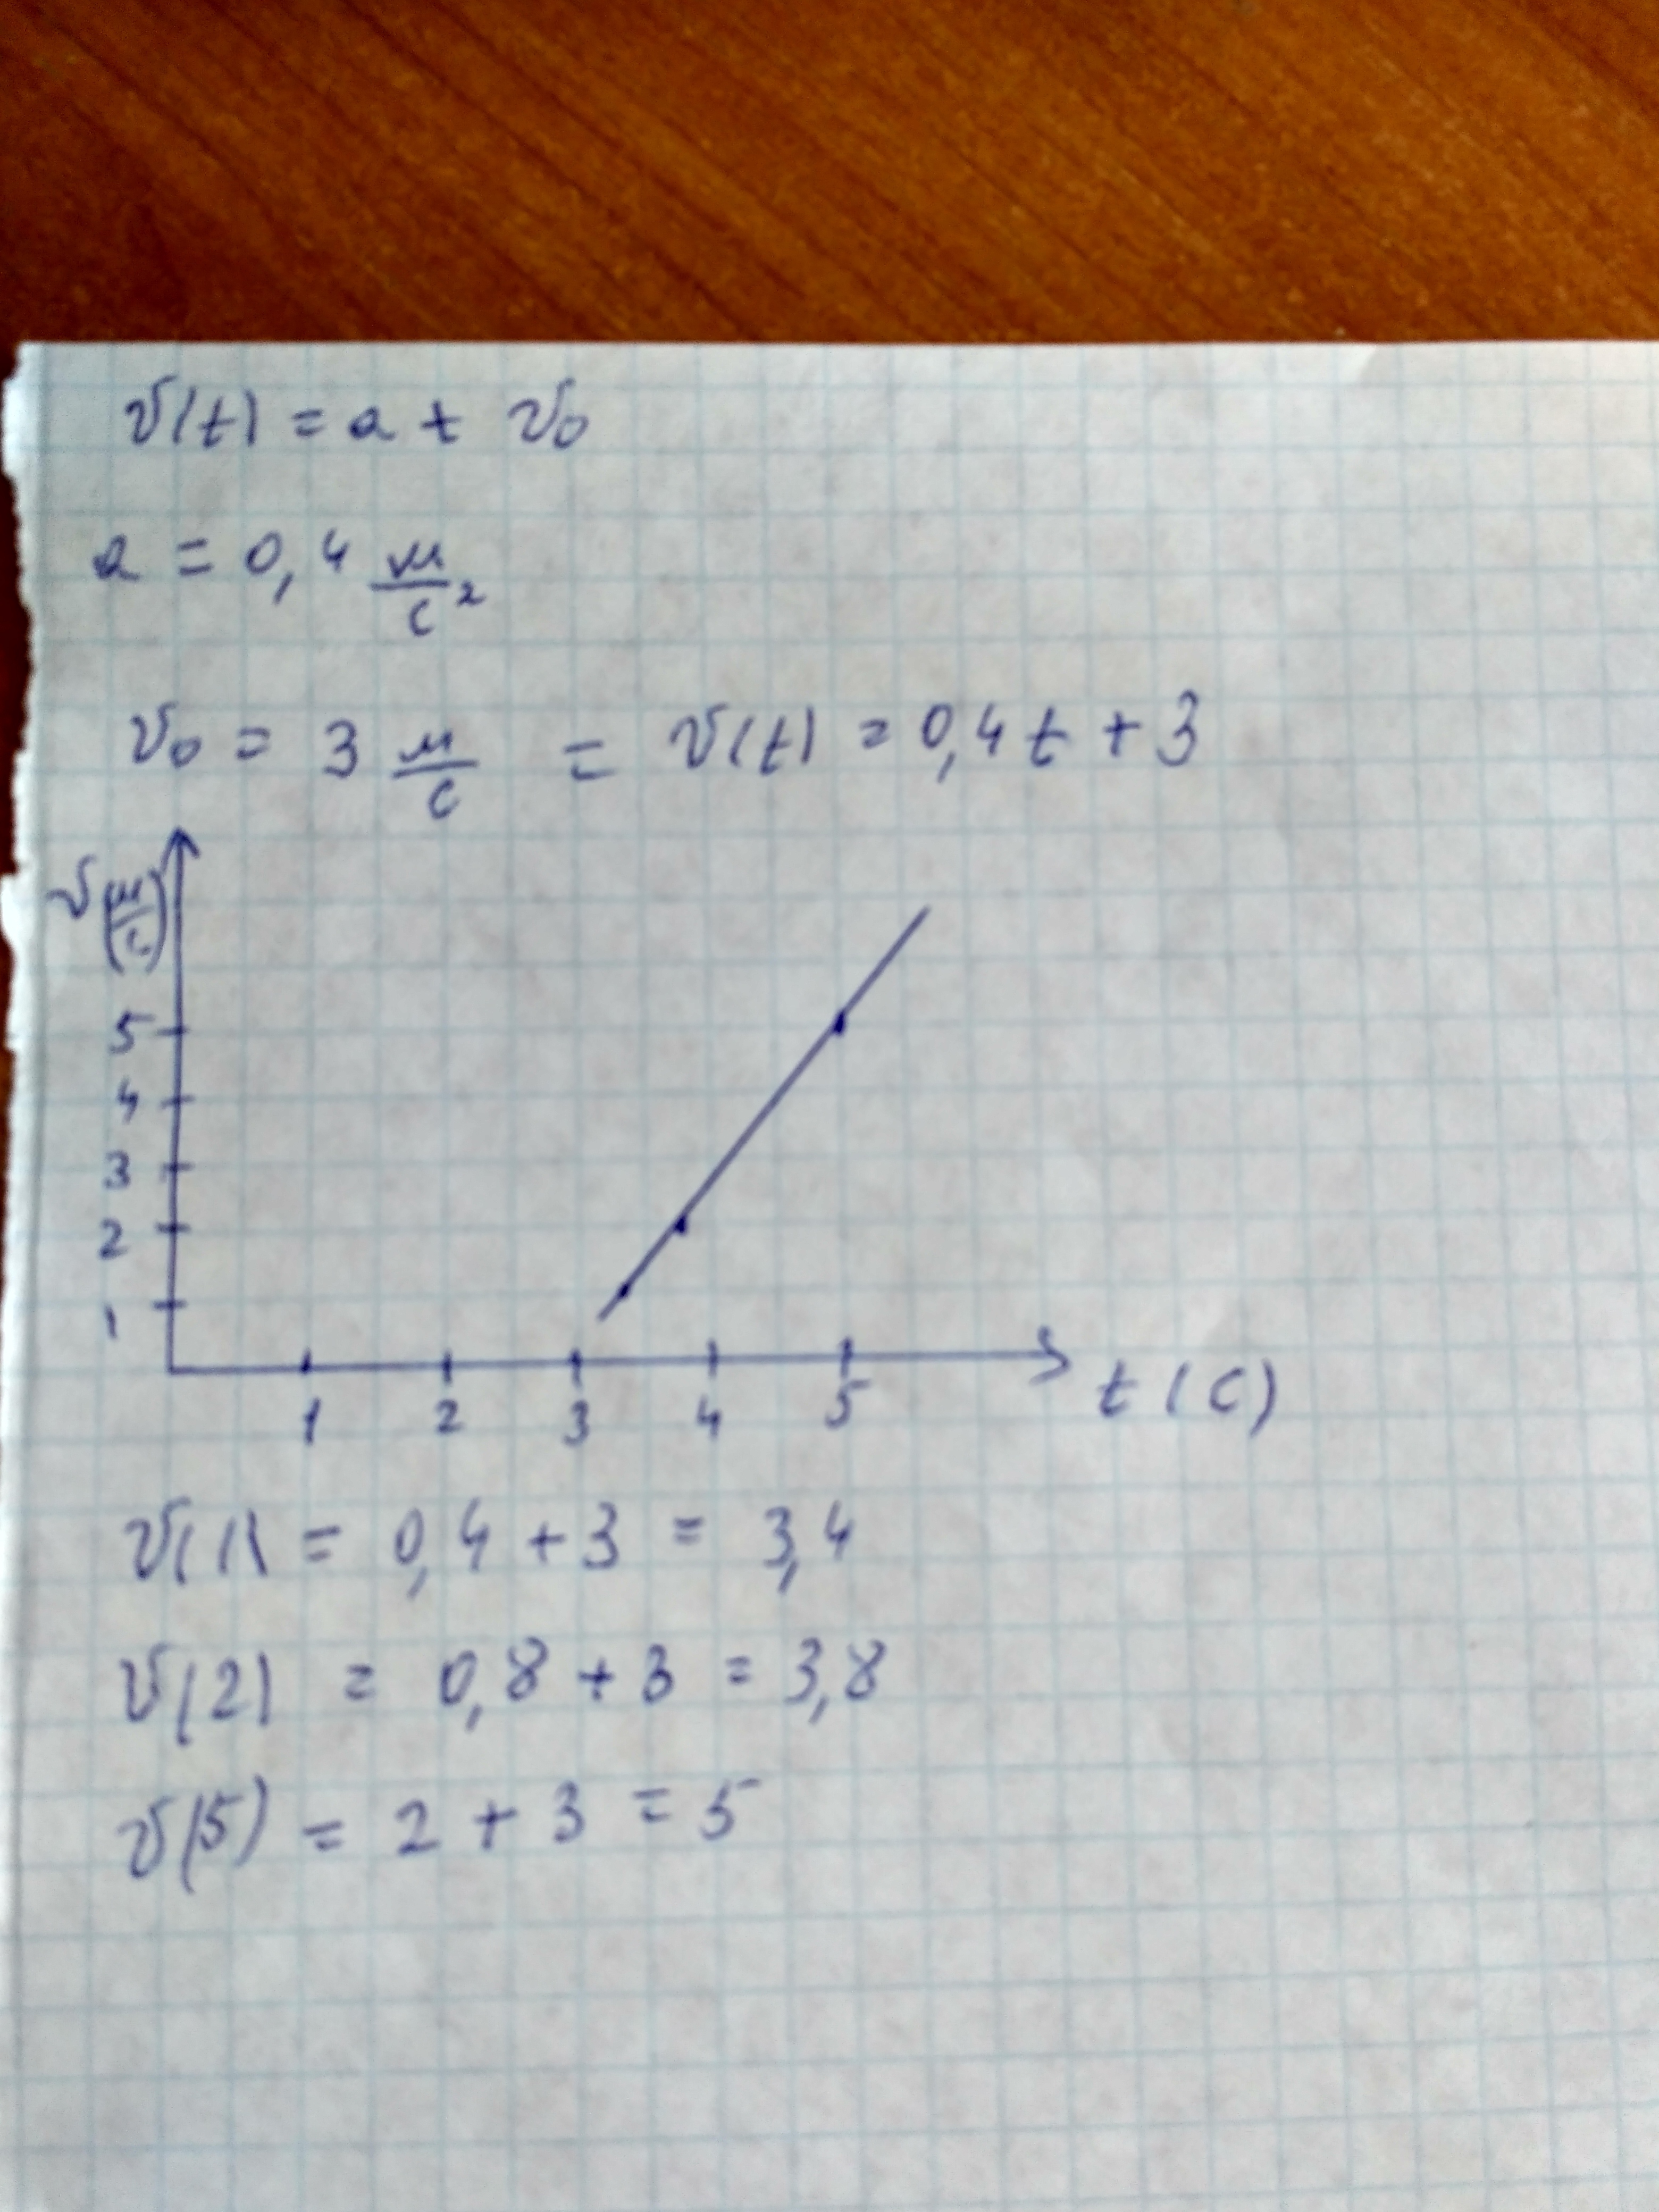 v(t) = a t v₀
a = 0,4 м/с²
v₀ = 3 м/с = v(t) = 0,4 t + 3
v(м/с)
5
4
3
2
1
1 2 3 4 5 t (с)
v(1) = 0,4 + 3 = 3,4
v(2) = 0,8 + 3 = 3,8
v(5) = 2 + 3 = 5